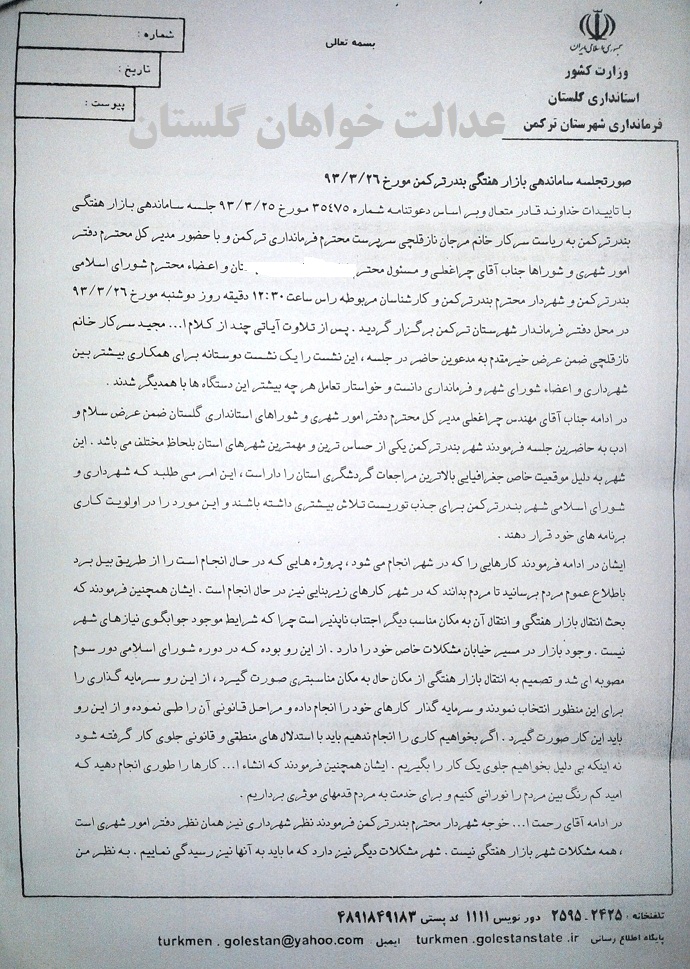 بسمه تعالی
شماره :
تاریخ :
پیوست :
جمهوری اسلامی ایران
وزارت کشور
استانداری گلستان
فرمانداری شهرستان ترکمن
عدالت خواهان گلستان
صورتجلسه ساماندهی بازار هفتگی بندرترکمن مورخ ۹۳/۳/۲۶
با تاییدات خداوند قادر متعال و بر اساس دعوتنامه شماره ۳۵۴۷۵ مورخ ۹۳/۳/۲۵ جلسه ساماندهی بازار هفتگی
بندرترکمن به ریاست سرکار خانم مرجان نازقلچی سرپرست محترم فرمانداری ترکمن و با حضور مدیر کل محترم دفتر
امور شهری و شوراها جناب آقای چراغعلی و مسئول محتر تان و اعضاء محترم شورای اسلامی
بندرترکمن و شهردار محترم بندرترکمن و کارشناسان مربوطه راس ساعت ۱۲:۳۰ دقیقه روز دوشنبه مورخ ۹۳/۳/۲۶
در محل دفتر فرماندار شهرستان ترکمن برگزار گردید . پس از تلاوت آیاتی چند از کلام ا... مجید سرکار خانم
نازقلچی ضمن عرض خیرمقدم به مدعوین حاضر در جلسه ، این نشست را یک نشست دوستانه برای همکاری بیشتر بین
شهرداری و اعضاء شورای شهر و فرمانداری دانست و خواستار تعامل هر چه بیشتر این دستگاه ها با همدیگر شدند .
در ادامه جناب آقای مهندس چراغعلی مدیر کل محترم دفتر امور شهری و شوراهای استانداری گلستان ضمن عرض سلام و
ادب به حاضرین جلسه فرمودند شهر بندرترکمن یکی از حساس ترین و مهمترین شهرهای استان بلحاظ مختلف می باشد . این
شهر به دلیل موقعیت خاص جغرافیایی بالاترین مراجعات گردشگری استان را داراست ، این امر می طلبد که شهرداری و
شورای اسلامی شهر بندرترکمن برای جذب توریست تلاش بیشتری داشته باشند و این مورد را در اولویت کاری
برنامه های خود قرار دهند .
ایشان در ادامه فرمودند کارهایی را که در شهر انجام می شود ، پروژه هایی که در حال انجام است را از طریق بیل برد
باطلاع عموم مردم برسانید تا مردم بدانند که در شهر کارهای زیربنایی نیز در حال انجام است . ایشان همچنین فرمودند که
بحث انتقال بازار هفتگی و انتقال آن به مکان مناسب دیگر اجتناب ناپذیر است چرا که شرایط موجود جوابگوی نیازهای شهر
نیست . وجود بازار در مسیر خیابان مشکلات خاص خود را دارد . از این رو بوده که در دوره شورای اسلامی دور سوم
مصوبه ای شد و تصمیم به انتقال بازار هفتگی از مکان حال به مکان مناسبتری صورت گیرد ، از این رو سرمایه گذاری را
برای این منظور انتخاب نمودند و سرمایه گذار کارهای خود را انجام داده و مراحل قانونی آن را طی نموده و از این رو
باید این کار صورت گیرد . اگر بخواهیم کاری را انجام ندهیم باید با استدلال های منطقی و قانونی جلوی کار گرفته شود
نه اینکه بی دلیل بخواهیم جلوی یک کار را بگیریم . ایشان همچنین فرمودند که انشاء ا... کارها را طوری انجام دهید که
امید کم رنگ بین مردم را نورانی کنیم و برای خدمت به مردم قدمهای موثری برداریم .
در ادامه آقای رحمت ا... خوجه شهردار محترم بندرترکمن فرمودند نظر شهرداری نیز همان نظر دفتر امور شهری است
، همه مشکلات شهر بازار هفتگی نیست . شهر مشکلات دیگر نیز دارد که ما باید به آنها نیز رسیدگی نماییم . به نظر من
تلفنخانه : ۲۴۲۵ - ۲۵۹۵ دور نویس ۱۱۱۱ کد پستی ۴۸۹۱۸۴۹۱۸۳
پایگاه اطلاع رسانی turkmen .golestanstate .ir ایمیل turkmen . golestan@yahoo.com